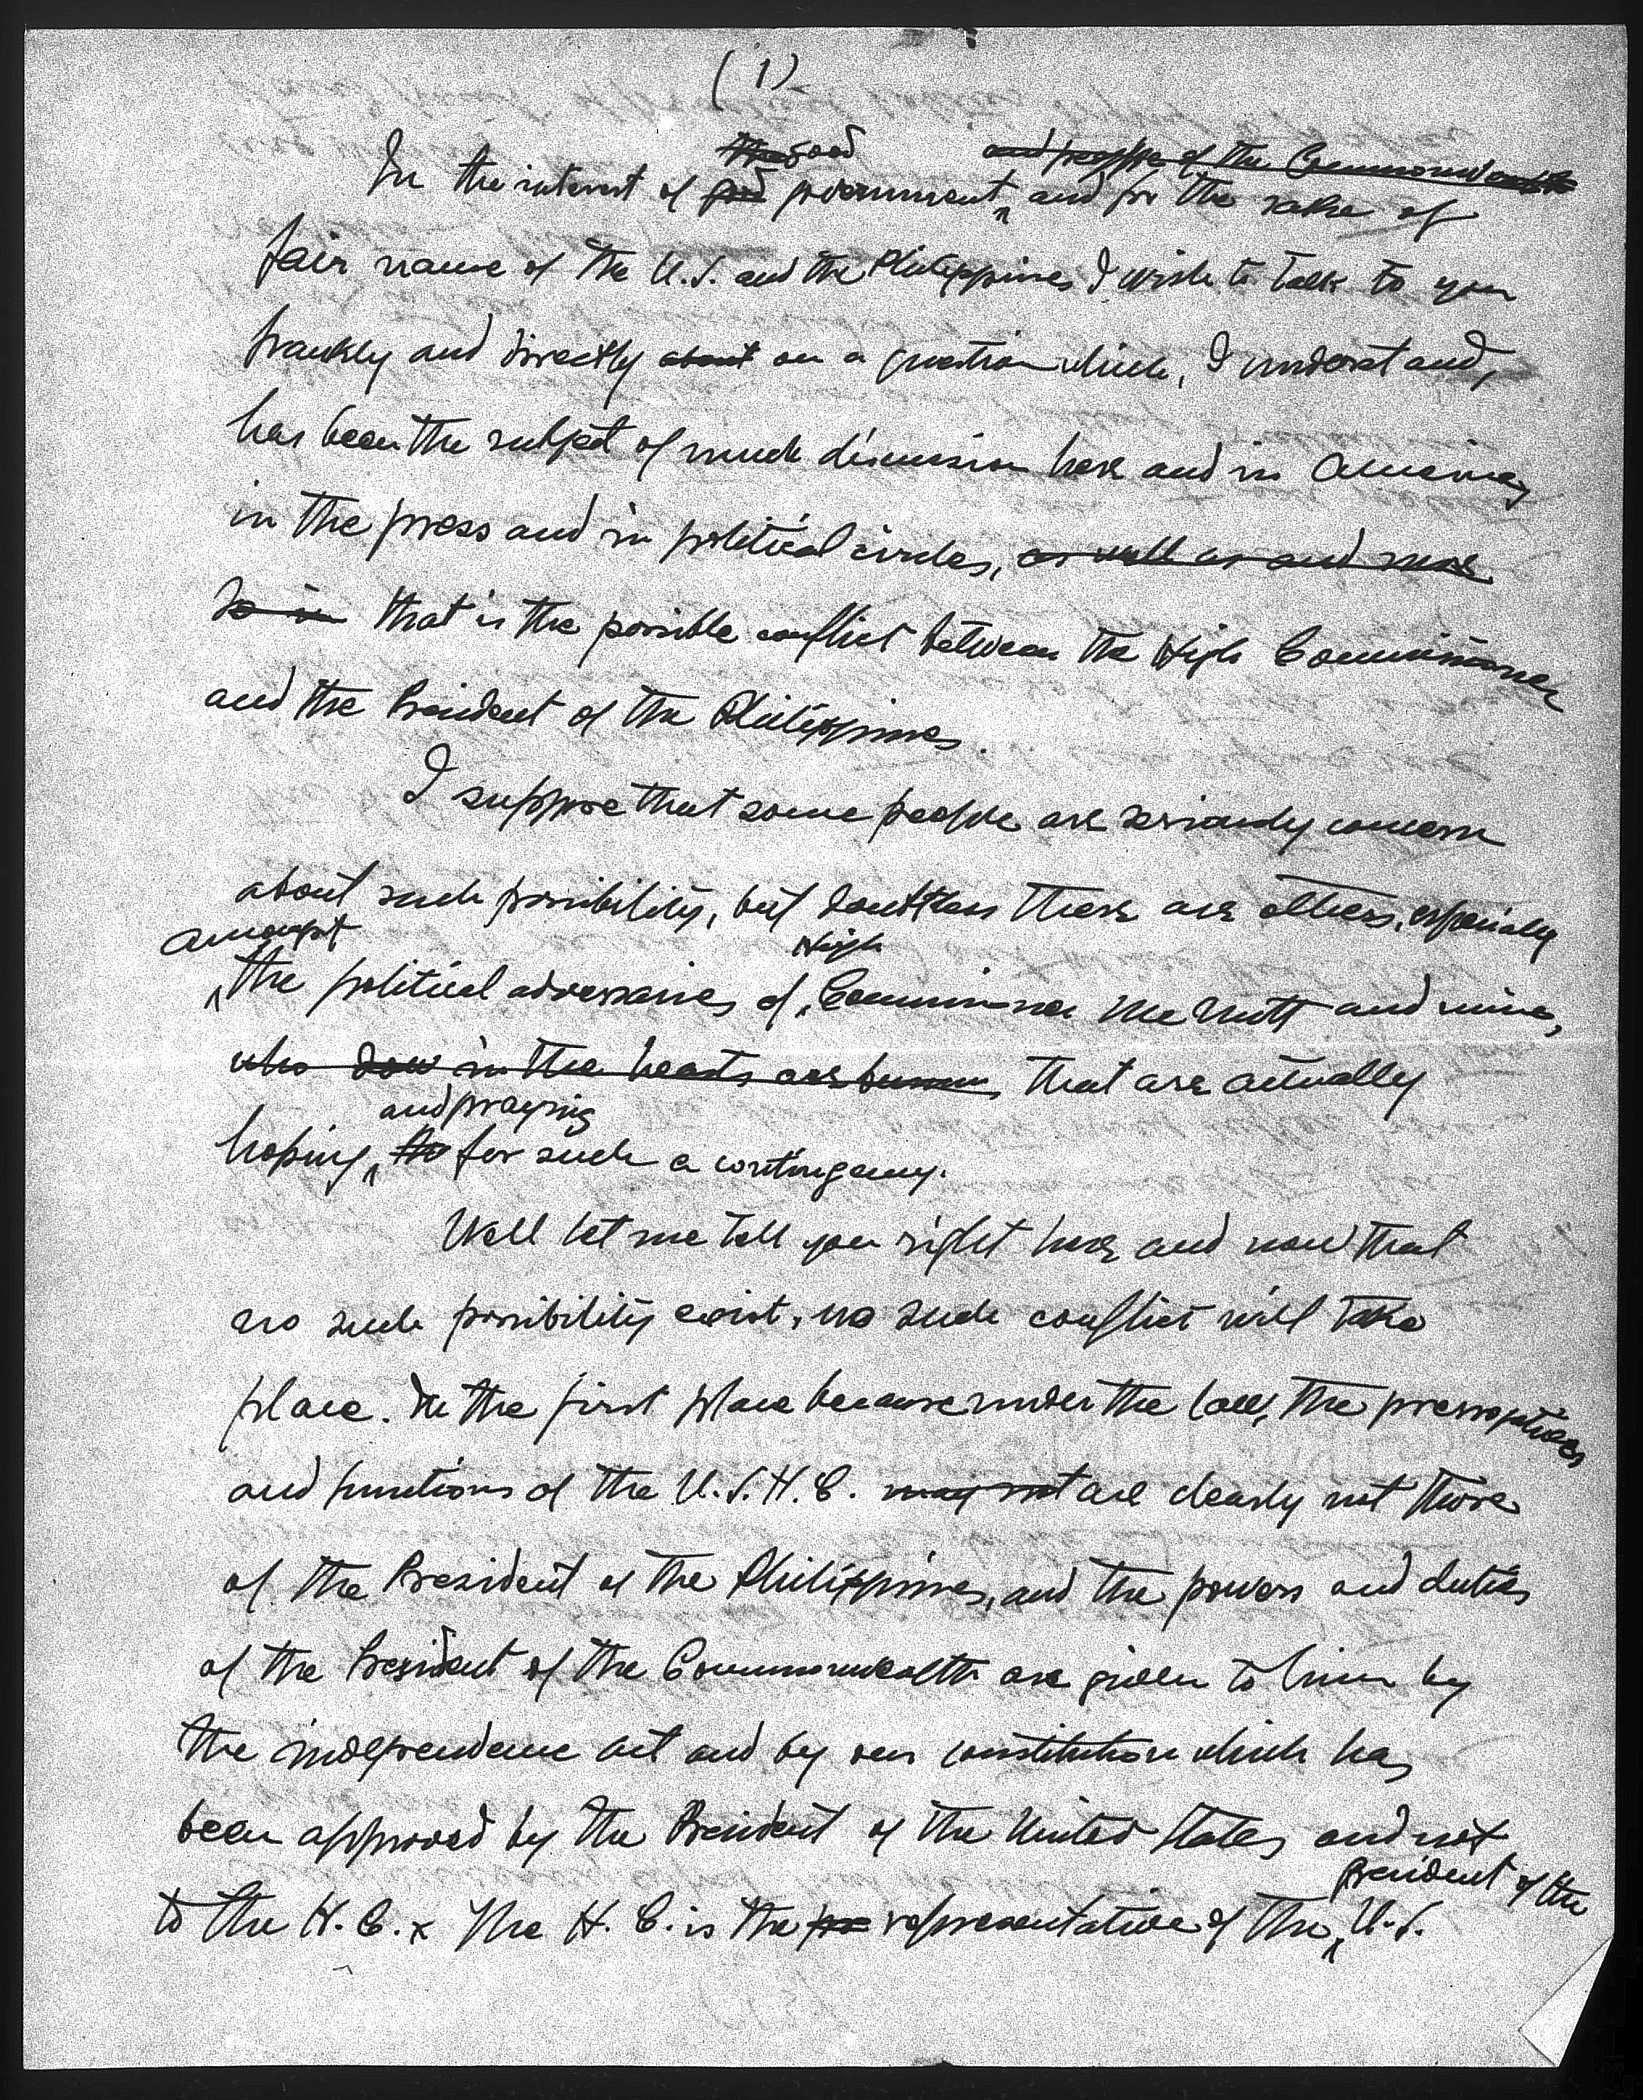 (1)
the good and people of the Commonwealth
In the interest of good government, and for the sake of
fair name of the U.S. and the Philippines I wish to talk to you
frankly and directly about on a question which, I understand,
has been the subject of much discussion here and in America,
in the press and in political circles, as well as and more
so in that is the possible conflict between the High Commissioner
and the President of the Philippines.
I suppose that some people are seriously concern
about such possibility, but doubtless there are others, especially
amongst High
the political adversaries of Commissioner McNutt and mine,
who in the hearts are that are actually
and praying
hoping, to for such a contingency.
Well let me tell you right here and now that
no such possibility exist, no such conflict will take
place. In the first place because under the law, the prerrogatives
and functions of the U.S.H.C. may not are clearly not those
of the President of the Philippines, and the powers and duties
of the President of the Commonwealth are given to him by
the independence act and by our constitution which has
been approved by the President of the United States and not
President of the
to the H.C. x The H.C. is the representative of the U.S.